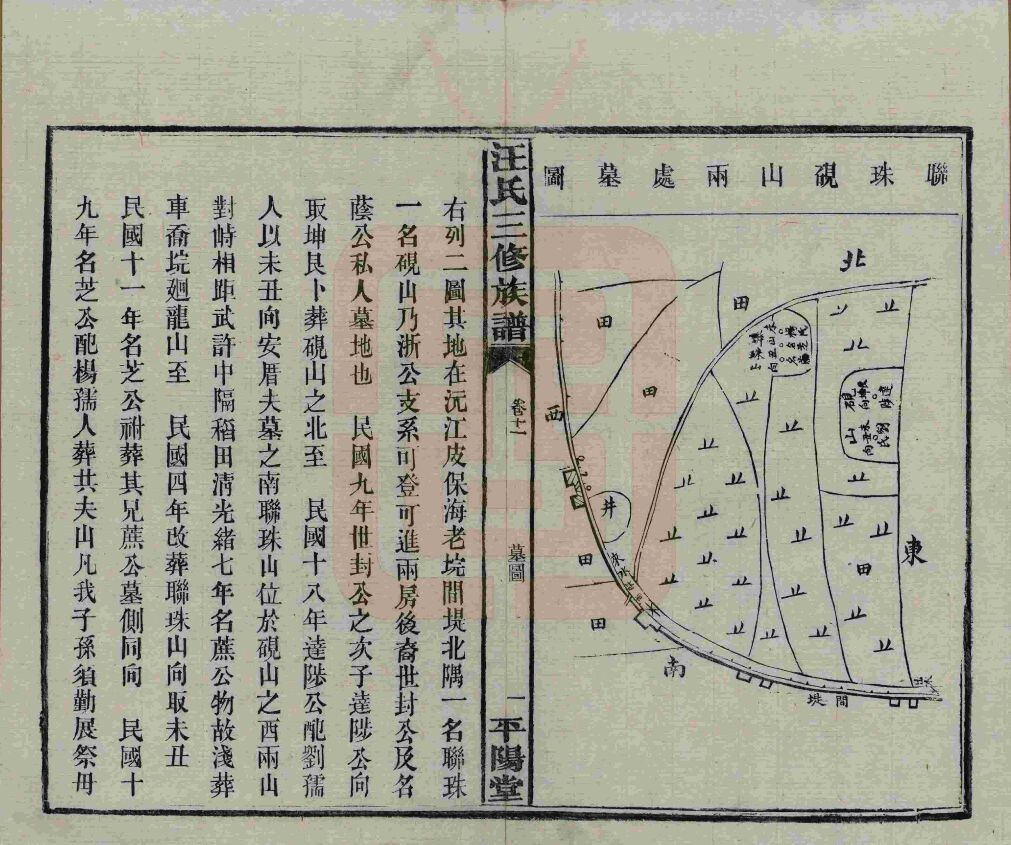 聯珠硯山兩處墓圖
北
東
南
西
田
田
田
田
田
田
井
間堤
硯山
聯珠山
汪氏三修族譜
卷十二
墓圖
一
平陽堂
右列二圖其地在沅江皮保海老垸間堤北隅一名聯珠
一名硯山乃浙公支系可登可進兩房後裔世封公及名
蔭公私人墓地也　民國九年世封公之次子達陟公向
取坤艮卜葬硯山之北至　民國十八年達陟公配劉孺
人以未丑向安厝夫墓之南聯珠山位於硯山之西兩山
對峙相距武許中隔稻田淸光緒七年名蔗公物故淺葬
車喬垸廻龍山至　民國四年改葬聯珠山向取未丑
民國十一年名芝公祔葬其兄蔗公墓側同向　民國十
九年名芝公配楊孺人葬共夫山凡我子孫須勤展祭毋